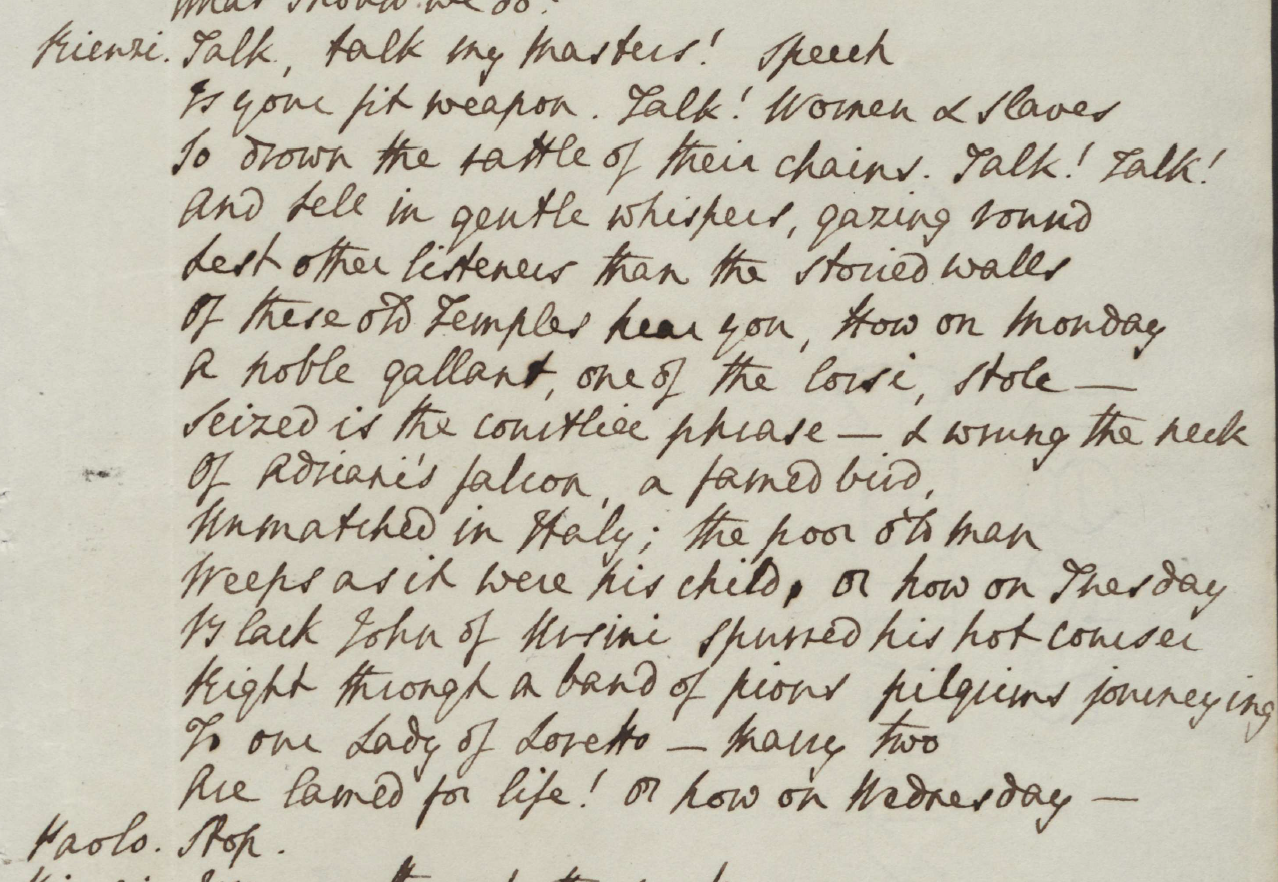 what should we do?
Rienzi. Talk, talk my Masters! Speech
Is your fit weapon. Talk! Women & slaves
So drown the rattle of their chains. Talk! Talk!
And tell in gentle whispers, gazing round
Lest other listeners than the storied walls
Of these old Temples hear you, How on Monday
A noble gallant, one of the Corsi, stole —
Seized is the courtlier phrase — & wrung the neck
Of Adriani's falcon, a famed bird,
Unmatched in Italy; the poor old man
Weeps as it were his child, or how on Tuesday
Black John of Ursini spurred his hot courser
Right through a band of pious pilgrims journeying
To our Lady of Loretto — Marry two
Are lamed for life! Or how on Wednesday —
Paolo. Stop.